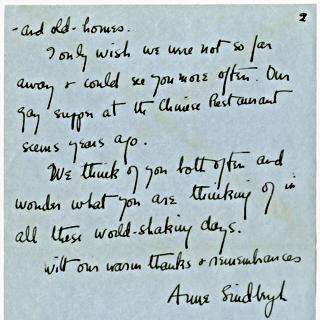 2
-and old-homes.
I only wish we were not so far
away & could see you more often. Our
gay supper at the Chinese Restaurant
seems years ago.
We think of you both often and
wonder what you are thinking of in
all these world-shaking days.
With our warm thanks & remembrances
Anne Lindbergh